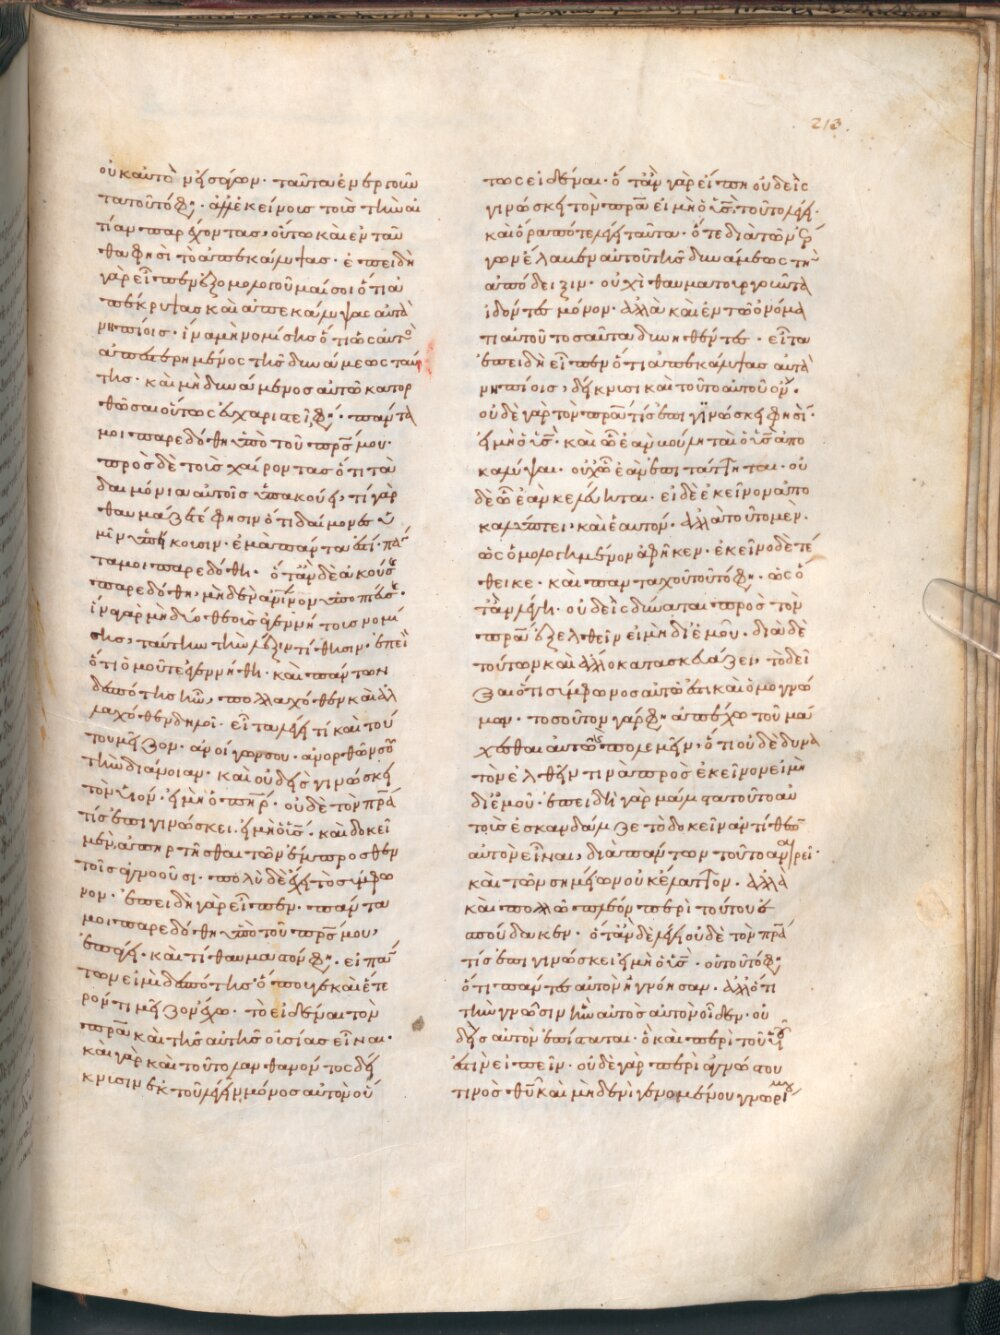 213.
οὐκ αὐτὸ μείζων· ταῦτα ἐν ἑτοίμω
τὰ τοῦτό φη· ἀλλ' ἐκείνοις τοῖς τὴν αἰ
τίαν παρέχοντας, οὕτω καὶ ἐνταῦ
θα φησὶ τὸ ἀπεκάλυψας· ἐπειδὴ
γὰρ εἶπεν ἐξομολογοῦμαί σοι ὅτι ἀ
πέκρυψας καὶ ἀπεκάλυψας αὐτὰ
νηπίοις· ἵνα μὴ νομίσης ὅτι ὡς αὐτὸς
ἀπεστερημένος τῆς δυνάμεως ταύ
της· καὶ μὴ δυνάμενος αὐτὸ κατορ
θῶσαι οὕτως εὐχαριστεῖ φη· πάντα
μοι παρεδόθη ὑπὸ τοῦ πρς μου·
πρὸς δὲ τοὺς χαίροντας ὅτι τὰ
δαιμόνια αὐτοῖς ὑπακούει, τί γὰρ
θαυμάζετέ φησιν ὅτι δαίμονες ὑ
μῖν ὑπείκουσιν· ἐμὰ πάντα ἐστί· πάν
τα μοι παρεδόθη· ὅταν δὲ ἀκούσης
παρεδόθη, μηδὲν ἀνινον ὑποπτεύσης·
ἵνα γὰρ μὴ δύο θεοὺς ἀγεννήτους νομί
σης, ταύτην τὴν λέξιν τίθησιν· ἐπεὶ
ὅτι ὁμοῦ τε ἐγεννήθη· καὶ πάντων
δεσπότης ἦν, πολλαχόθεν καὶ ἀλ
λαχόθεν δηλοῖ· εἶτα λέγει τί καὶ τού
του μεῖζον· ἀνοίγων σου· ἀνορθῶν σου
τὴν διάνοιαν· καὶ οὐδεὶς γινώσκει
τὸν υἱόν· εἰ μὴ ὁ πηρ· οὐδὲ τὸν πρα
τίς ἐπιγινώσκει· εἰ μὴ ὁ υς· καὶ δοκεῖ
μὲν ἀπηρτῆσθαι τῶν ἔμπροσθεν
τοῖς ἀγνοοῦσι· πολὺ δὲ ἔχει τὸ σύμφω
νον· ἐπειδὴ γὰρ εἶπεν· πάντα
μοι παρεδόθη ὑπὸ τοῦ πρς μου,
ἐπάγει· καὶ τί θαυμαστόν φη· εἰ πάν
των εἰμὶ δεσπότης· ὅπου γε καὶ ἕτε
ρόν τι μεῖζον ἔχω· τὸ εἰδέναι τὸν
πρα καὶ τῆς αὐτῆς οὐσίας εἶναι·
καὶ γὰρ καὶ τοῦτο λανθανόντως δεί
κνυσιν ἐκ τοῦ λέγειν μόνος αὐτὸν οὕ
τως εἰδέναι· ὅταν γὰρ εἴπη οὐδεὶς
γινώσκει τὸν πρα εἰ μὴ ὁ υς· τοῦτο λέγει·
καὶ ὅρα πότε λέγει ταῦτα· ὅτε διὰ τῶν ἔρ
γων ἔλαβεν αὐτοῦ τῆς δυνάμεως τὴν
ἀπόδειξιν· οὐχὶ θαυματουργοῦντα
ἰδόντες μόνον· ἀλλὰ καὶ ἐν τῶ ὀνόμα
τι αὐτοῦ τοσαῦτα δυνηθέντες· εἶτα
ἐπειδὴ εἶπεν ὅτι ἀπεκάλυψας αὐτὰ
νηπίοις, δείκνυσι καὶ τοῦτο αὐτοῦ ὄν·
οὐδὲ γὰρ τὸν πρα τίς ἐπιγινώσκει φησί·
εἰ μὴ ὁ υς· καὶ ὧ ἐὰν βούληται ὁ υς ἀπο
καλύψαι· οὐχ' ὧ ἐὰν ἐπιτάττηται· οὐ
δὲ ὧ ἐὰν κελεύηται· εἰ δὲ ἐκεῖνον ἀπο
καλύπτει, καὶ ἑαυτόν· ἀλλὰ τοῦτο μὲν·
ὡς ὁμολογημένον ἀφῆκεν· ἐκεῖνο δὲ τέ
θεικε· καὶ πανταχοῦ τοῦτό φη· ὡς ὅ
ταν λέγη· οὐδεὶς δύναται πρὸς τὸν
πρα ἐξελθεῖν εἰ μὴ δι' ἐμοῦ· διὰ δὲ
τούτων καὶ ἄλλο κατασκευάζει, τὸ δεῖ
ξαι ὅτι σύμφωνος αὐτῶ ἐστι καὶ ὁμογνώ
μων· τοσοῦτον γάρ φη ἀπέχω τοῦ μά
χεσθαι αὐτῶ καὶ πολεμεῖν, ὅτι οὐδὲ δυνα
τὸν ἐλθεῖν τινὰ πρὸς ἐκεῖνον εἰ μὴ
δι' ἐμοῦ· ἐπειδὴ γὰρ μάλιστα τοῦτο αὐ
τοὺς ἐσκανδάλιζε τὸ δοκεῖν ἀντίθεον
αὐτὸν εἶναι, διὰ πάντων τοῦτο ἀναιρεῖ·
καὶ τῶν σημείων οὐκ ἔλαττον· ἀλλὰ
καὶ πολλῶ πλέον περὶ τούτου ἐ
σπούδακεν· ὅταν δὲ λέγει οὐδὲ τὸν πρα
τίς ἐπιγινώσκει εἰ μὴ ὁ υς· οὐ τοῦτό φη
ὅτι πάντες αὐτὸν ἠγνόησαν· ἀλλ' ὅτι
τὴν γνῶσιν ἣν αὐτὸς αὐτὸν οἶδεν· οὐ
δεὶς αὐτὸν ἐπίσταται· ὃ καὶ περὶ τοῦ υυ
ἔστιν εἰπεῖν· οὐδὲ γὰρ περὶ ἀγνώστου
τινὸς θυ καὶ μηδενὶ γενομένου γνωρί